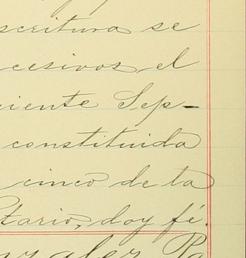 scritura se
cesivos el
ciente Sep-
constituida
cinco de la
tario, doy fé.
nzalez Pa